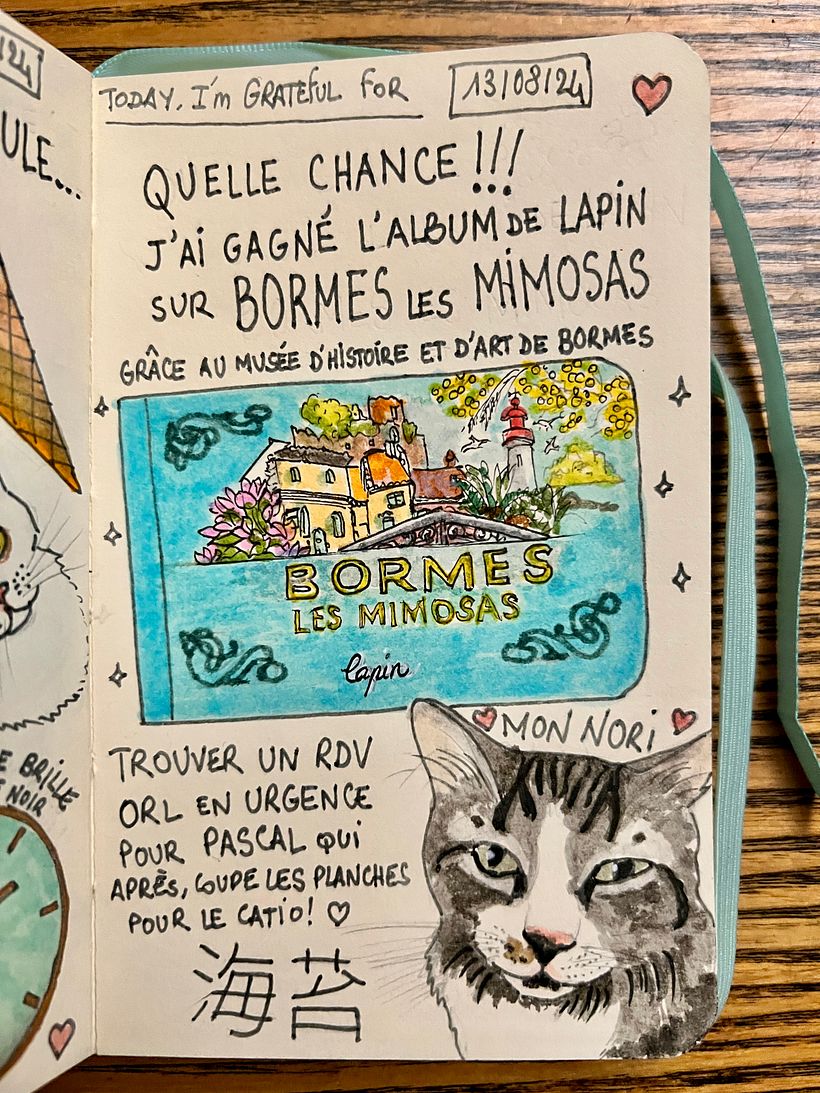 /24
ULE...
E BRILLE
T NOIR
TODAY, I'm GRATEFUL FOR 13/08/24
QUELLE CHANCE!!!
J'Ai GAGNÉ L'ALBUM DE LAPiN
SUR BORMES LES MiMOSAS
GRÂCE AU MUSÉE D'HiSTOiRE ET D'ART DE BORMES
BORMES
LES MIMOSAS
lapin
MON NORi
TROUVER UN RDV
ORL EN URGENCE
POUR PASCAL QUi
APRÈS, COUPE LES PLANCHES
POUR LE CATiO!
海苔